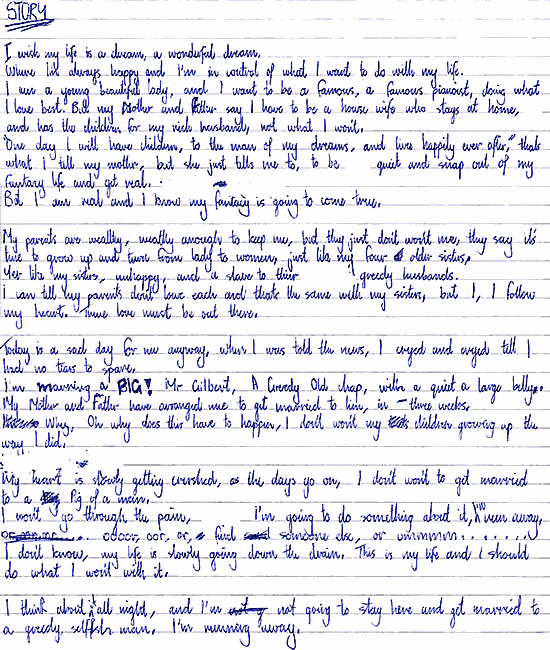 STORY
I wish my life is a dream, a wonderful dream.
Where I'll always happy and I'm in control of what I want to do with my life.
I am a young beautiful lady, and I want to be a famous, a famous pianoist, doing what
I love best. But my Mother and Father say I have to be a house wife who stays at home,
and has the children for my rich husband, not what I won't.
"One day I will have children, to the man of my dreams, and lives happily ever after," thats
what I tell my mother, but she just tells me to, to be quiet and snap out of my
fantasy life and get real.
But I am real and I know my fantasy is going to come true.
My parents are wealthy, wealthy enough to keep me, but they just don't won't me, they say it's
time to grow up and turn from lady to women, just like my four older sisters,
Yer like my sisters, unhappy, and a slave to thier greedy husbands.
I can tell my parents don't love each and thats the same with my sisters, but I, I follow
my heart. True love must be out there.
Today is a sad day for me anyway, when I was told the news, I cryed and cryed tell I
had no tears to spare.
I'm marrying a BIG! Mr Gilbert, A Greedy Old chap, with a quiet a large belly.
My Mother and Father have arranged me to get married to him, in three weeks.
Why, Oh why does this have to happen, I don't won't my children growing up the
way I did.
My heart is slowly getting crushed, as the days go on, I don't won't to get married
to a Pig of a man.
I won't go through the pain, I'm going to do something about it, I'll run away,
ooorr, oor, or, find someone else, or ummmm.......
I don't know, my life is slowly going down the drain. This is my life and I should
do what I won't with it.
I think about it all night, and I'm not going to stay here and get married to
a greedy, selfish man. I'm running away.